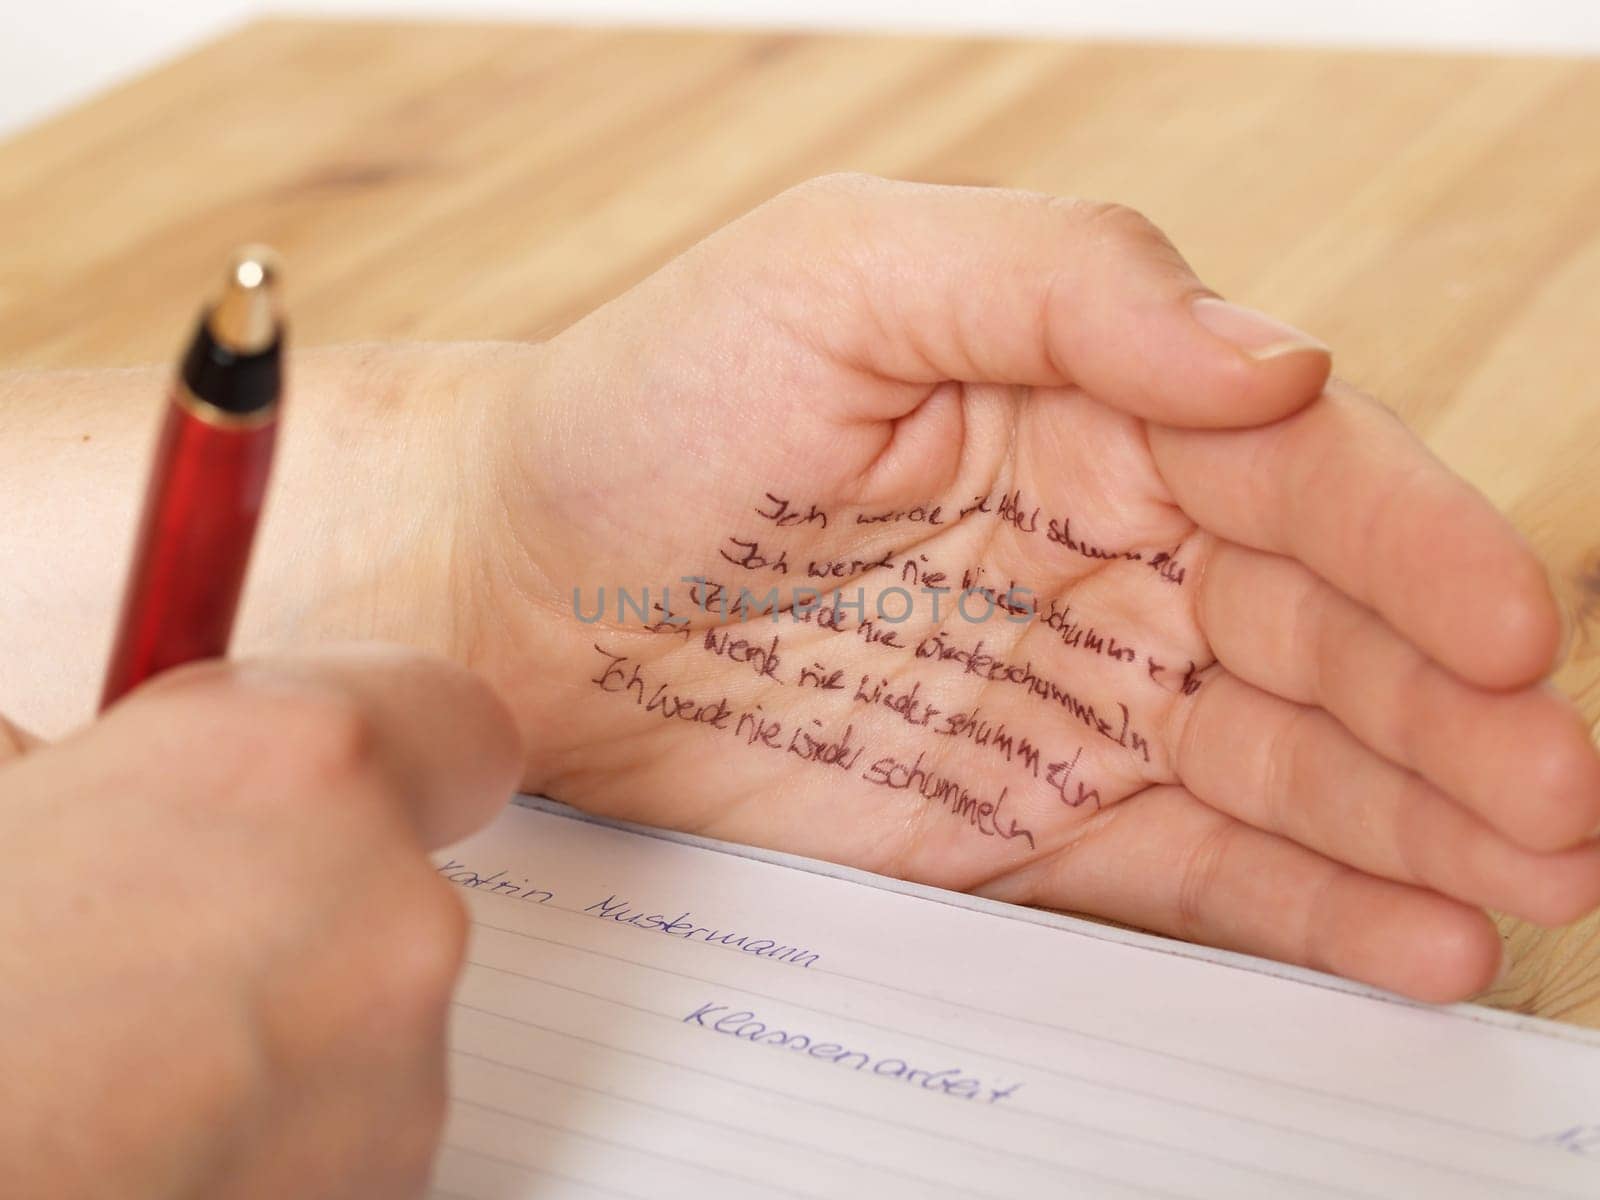 Ich werde nie wieder schummeln
Ich werde nie wieder schummeln
Ich werde nie wiederschummeln
Ich werde nie wieder schummeln
Ich werde nie wieder schummeln
UNLIMPHOTOS
Katrin Mustermann
Klassenarbeit
12